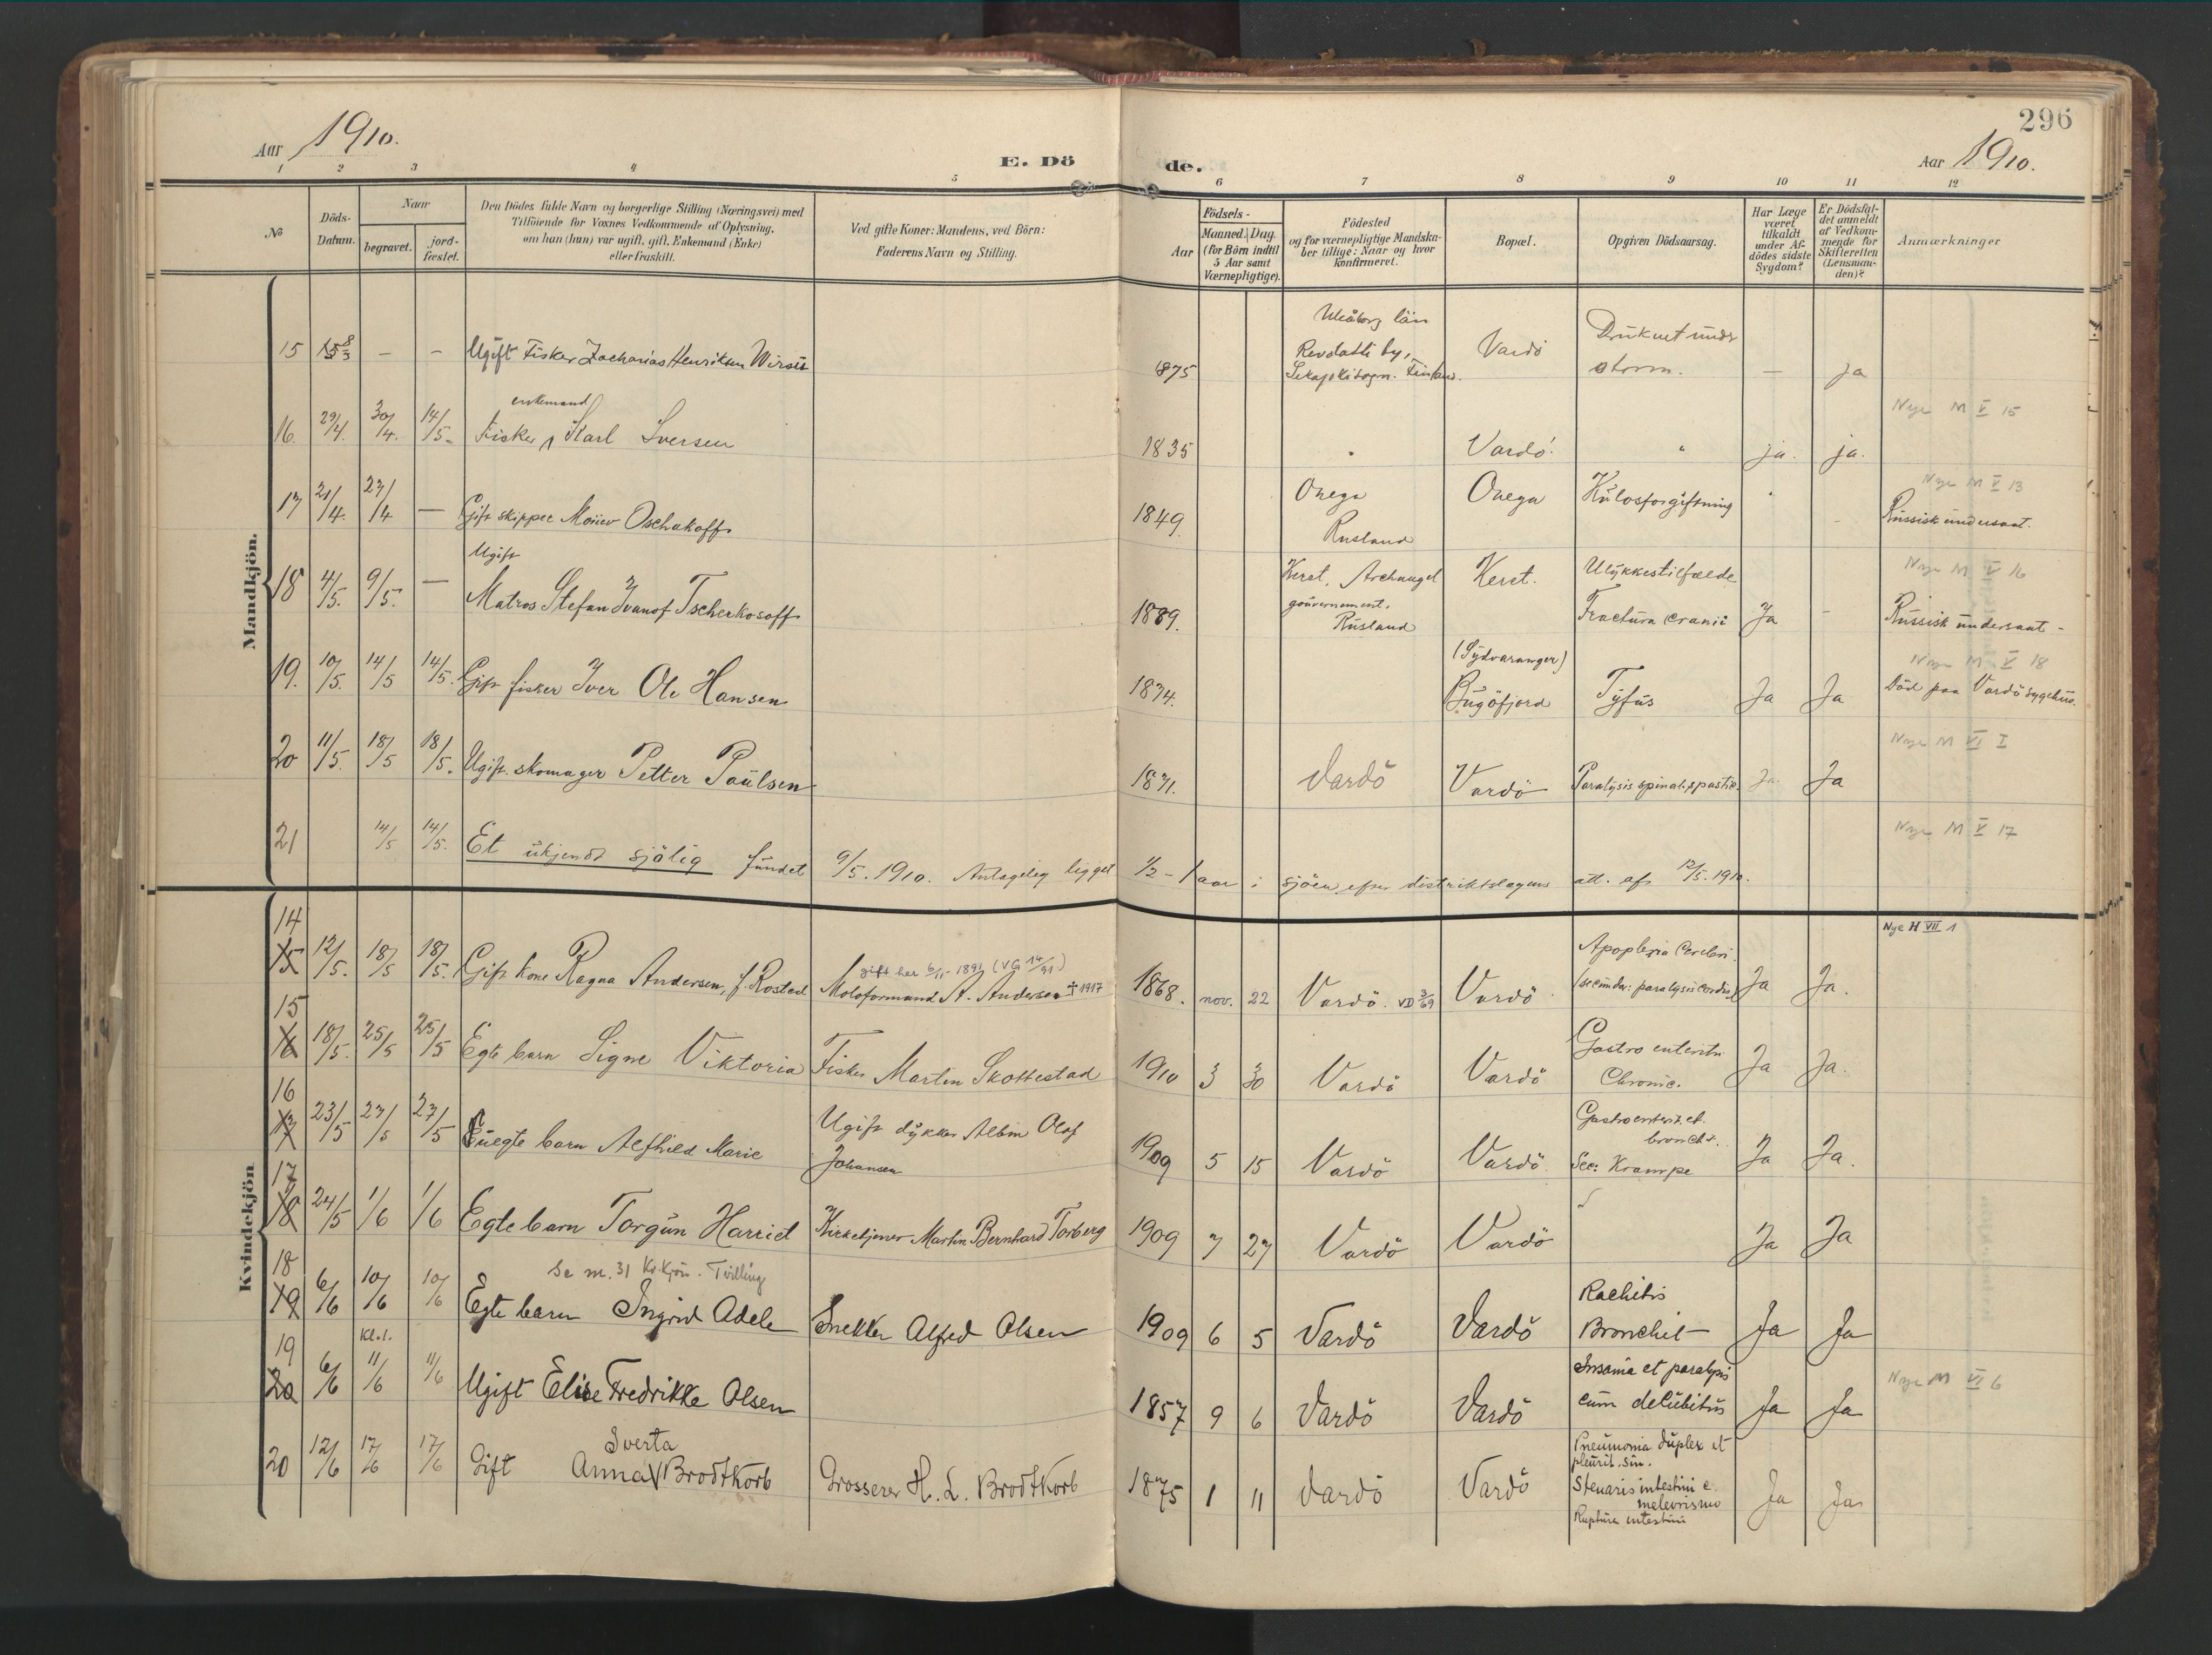 296
Aar 1910.
E. Dö de.
Aar 1910.
1 2 3 4 5 6 7 8 9 10 11 12
No
Döds-Datum.
Naar
begravet.
jord-fæstet.
Den Dödes fulde Navn og borgerlige Stilling (Næringsvei) med
Tilföiende for Voxnes Vedkommende af Oplysning,
om han (hun) var ugift, gift, Enkemand (Enke)
eller fraskilt.
Ved gifte Koner: Mandens, ved Börn:
Faderens Navn og Stilling.
Födsels-
Aar
Maaned. Dag.
(for Börn indtil
5 Aar samt
Værnepligtige).
Födested
og for værnepligtige Mandska-
ber tillige: Naar og hvor
konfirmeret.
Bopæl.
Opgiven Dödsaarsag.
Har Læge
været
tilkaldt
under Af-
dödes sidste
Sygdom?
Er Dödsfal-
det anmeldt
af Vedkom-
mende for
Skifteretten
(Lensman-
den)?
Anmærkninger
Mandkjön.
15 — — Ugift Fisker Zacharias Henriksen 1875 Uleåborg län by, Finland. Vardö Druknet under storm. — ja
Nye M V 15
16. 29/4. 30/4. 14/5. Fisker enkemand Karl Iversen 1835 Vardö. " ja. ja.
Nye M V 13
17 21/4. 27/4 — Gift skipper Oschakoff 1849. Onega Rusland Onega Kulosforgiftning Russisk undersaat.
Nye M V 16
18 4/5. 9/5. — Ugift Matros Stefan Ivanof Tscherkosoff 1889. Keret, Archangel gouvernement, Rusland Keret. Ulykkestilfælde Fractura cranii Ja - Russisk undersaat -
Nye M V 18
19. 10/5. 14/5 14/5. Gift fisker Iver Ole Hansen 1874. (Sydvaranger) Bugöfjord Tyfus Ja Ja Död paa Vardö sygehus.
Nye M VI I
20 11/5. 18/5 18/5. Ugift skomager Petter Paulsen 1871. Vardö Vardö Paralysis spinal. spastic. Ja. Ja
Nye M V 17
21 14/5 14/5. Et ukjendt sjölig fundet 9/5. 1910. Antagelig ligget 1/2 - 1 aar i sjöen efter distriktslægens att. af 12/5. 1910.
Kvindekjön
Nye H VII 1
14 15 12/5. 18/5 18/5. Gift kone Ragna Andersen, f. Rostad gift her 6/11 1891 (VG 14/91) Moloformand A. Andersen † 1917 1868. nov. 22 Vardö. VD 3/69 Vardö Apoplexia Cerebri. (secundær: paralysis cordis) Ja Ja.
15 16 18/5. 25/5 25/5 Egte barn Signe Viktoria Fisker Martin Skottestad 1910 3 30 Vardö Vardö Gastro enterit. Chronic. Ja Ja.
16 17 23/5 27/5 27/5 Uegte barn Alfhild Marie Ugift dykker Albin Olof Johansen 1909 5 15 Vardö Vardö. Gastroenterit. et bronchit. Sec: Krampe Ja Ja.
17 18 24/5 1/6 1/6 Egte barn Torgun Harriet Kirketjener Martin Bernhard Torberg 1909 7 27 Vardö Vardö Ja Ja
Se nr. 31 Kv.kjön. Tvilling
18 19 6/6 10/6 10/6 Egte barn Ingrid Adele Snekker Alfred Olsen 1909 6 5 Vardö Vardö Rachitis Bronchit Ja Ja
Kl. 1.
19 20 6/6 11/6 11/6 Ugift Elise Fredrikke Olsen 1857 9 6 Vardö Vardö Insania et paralysis cum decubitus Ja Ja
Nye M VI 6
20 12/6 17/6 17/6 Gift Anna Sverta Brodtkorb Grosserer H. L. Brodtkorb 1875 1 11 Vardö Vardö Pneumonia duplex et pleurit. sin. intestini e. Ruptura intestini Ja Ja